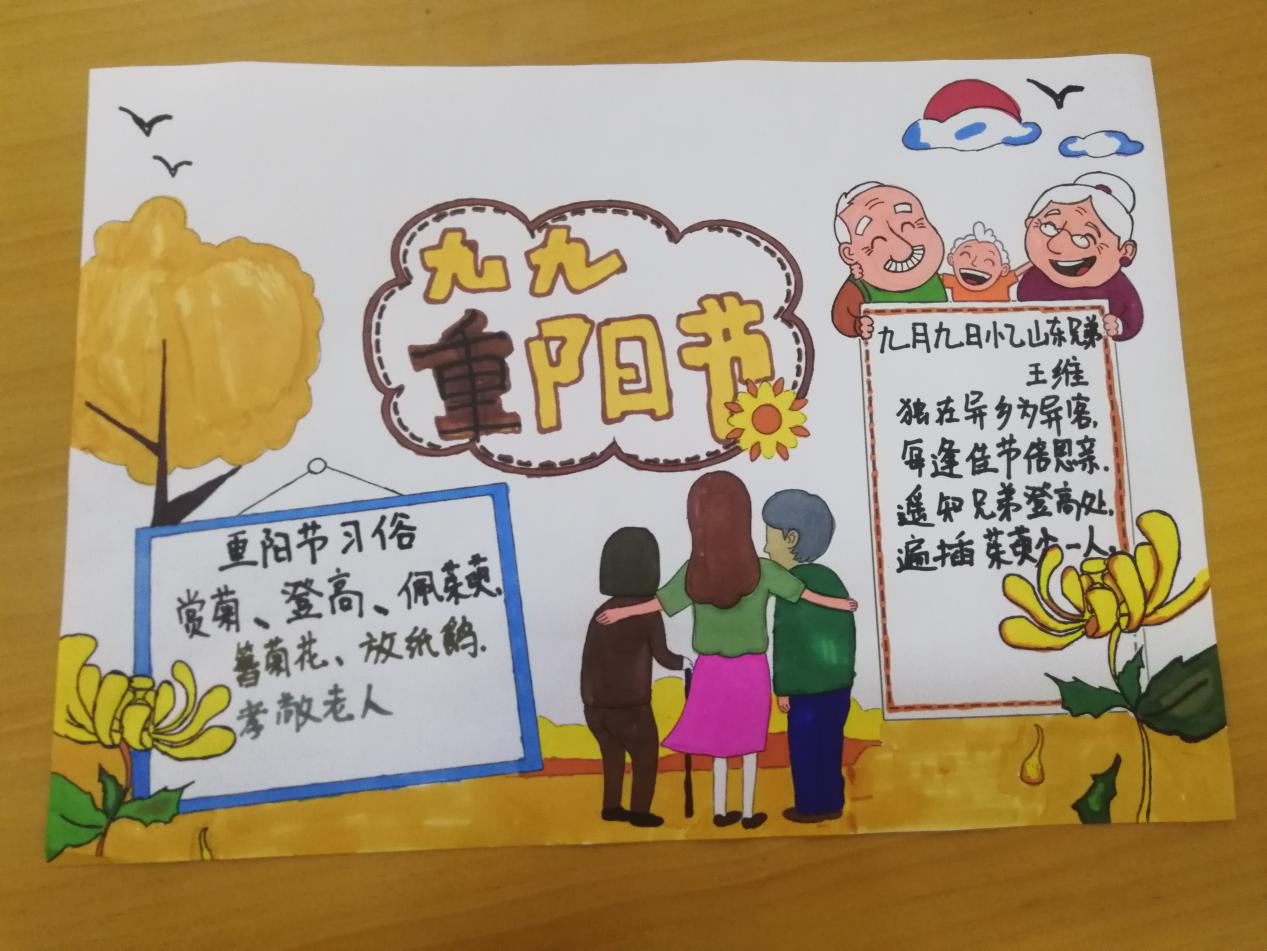 九九
重阳节
重阳节习俗
赏菊、登高、佩茱萸、
簪菊花、放纸鹞.
孝敬老人
九月九日忆山东兄弟
王维
独在异乡为异客,
每逢佳节倍思亲.
遥知兄弟登高处,
遍插茱萸少一人。